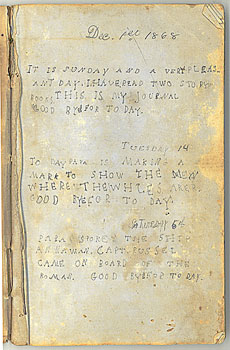 Dec. 1868
IT IS SUNDAY AND A VERY PLEAS
ANT DAY. I HAVE READ TWO STORY
BOOKS. THIS IS MY JOURNAL
GOOD BYE FOR TO DAY.
TUESDAY 14
TO DAY PAPA IS MAKING A
MARK TO SHOW THE MEN
WHERE THE WHLES ARE.
GOOD BYE FOR TO DAY.
6th
PAPA SPOKE THE SHI
CAPT.
CAME ON BOARD OF THE
ROMAN. GOOD BYE FOR TO DAY.